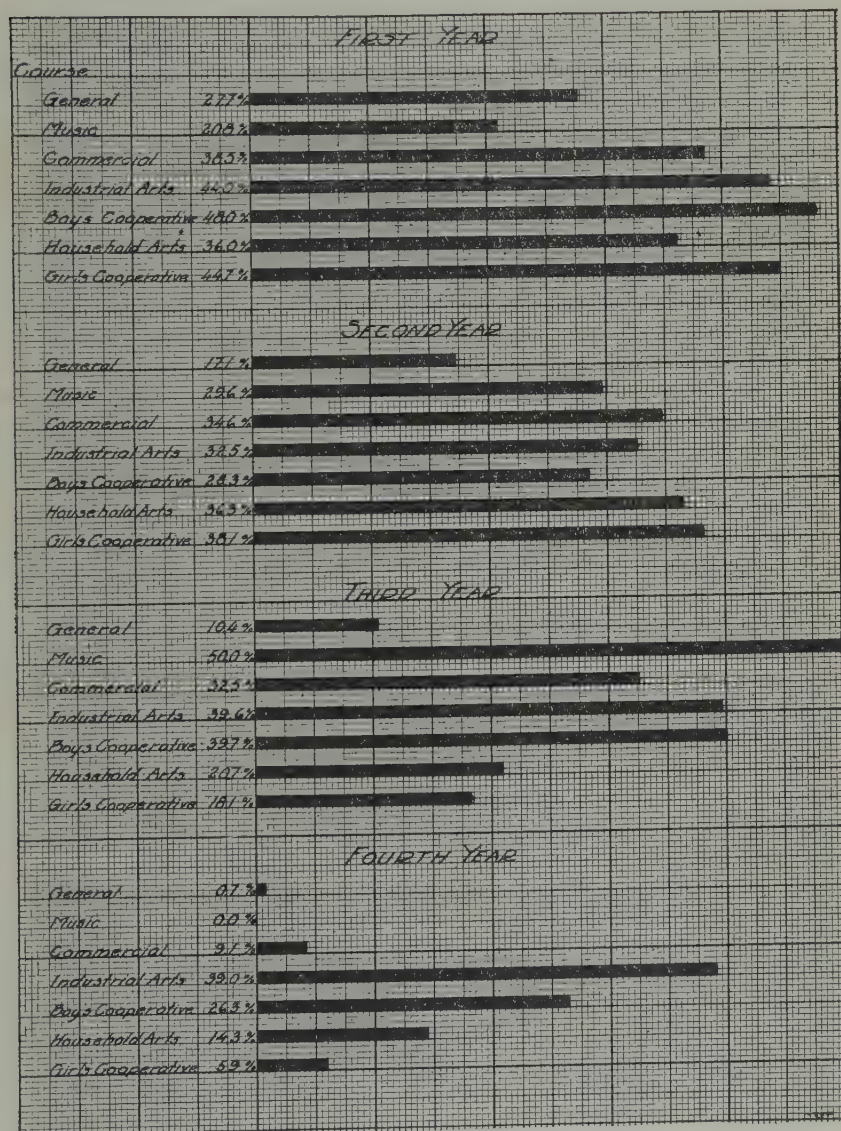 FIRST YEAR
Course
General 27.7%
Music 20.8%
Commercial 38.5%
Industrial Arts 44.0%
Boys Cooperative 48.0%
Household Arts 36.0%
Girls Cooperative 44.7%
SECOND YEAR
General 17.1%
Music 29.6%
Commercial 34.6%
Industrial Arts 32.5%
Boys Cooperative 28.3%
Household Arts 36.3%
Girls Cooperative 38.1%
THIRD YEAR
General 10.4%
Music 50.0%
Commercial 32.5%
Industrial Arts 39.6%
Boys Cooperative 39.7%
Household Arts 20.7%
Girls Cooperative 18.1%
FOURTH YEAR
General 0.7%
Music 0.0%
Commercial 9.1%
Industrial Arts 39.0%
Boys Cooperative 26.3%
Household Arts 14.3%
Girls Cooperative 5.9%